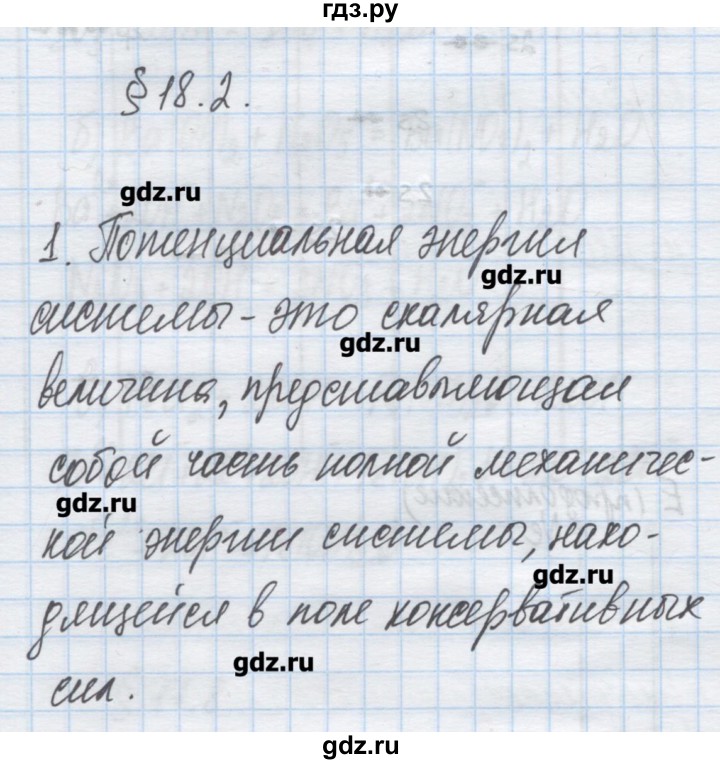 гдз.ру
§ 18.2.
gdz.ru
1. Потенциальная энергия
gdz.ru
системы - это скалярная
gdz.ru
величина, представляющая
собой часть полной механичес-
gdz.ru
кой энергии системы, нахо-
gdz.ru
дящейся в поле консервативных
gdz.ru
сил.
gdz.ru